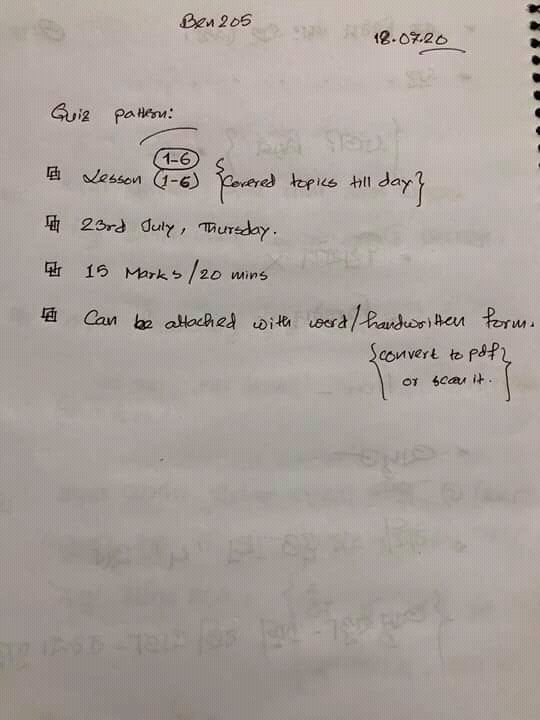 Ben 205
18.07.20
Quiz pattern:
1-6
Lesson (1-6) {Covered topics till day}
23rd July, Thursday.
15 Marks/20 mins
Can be attached with word/handwritten form.
{convert to pdf
or scan it.}